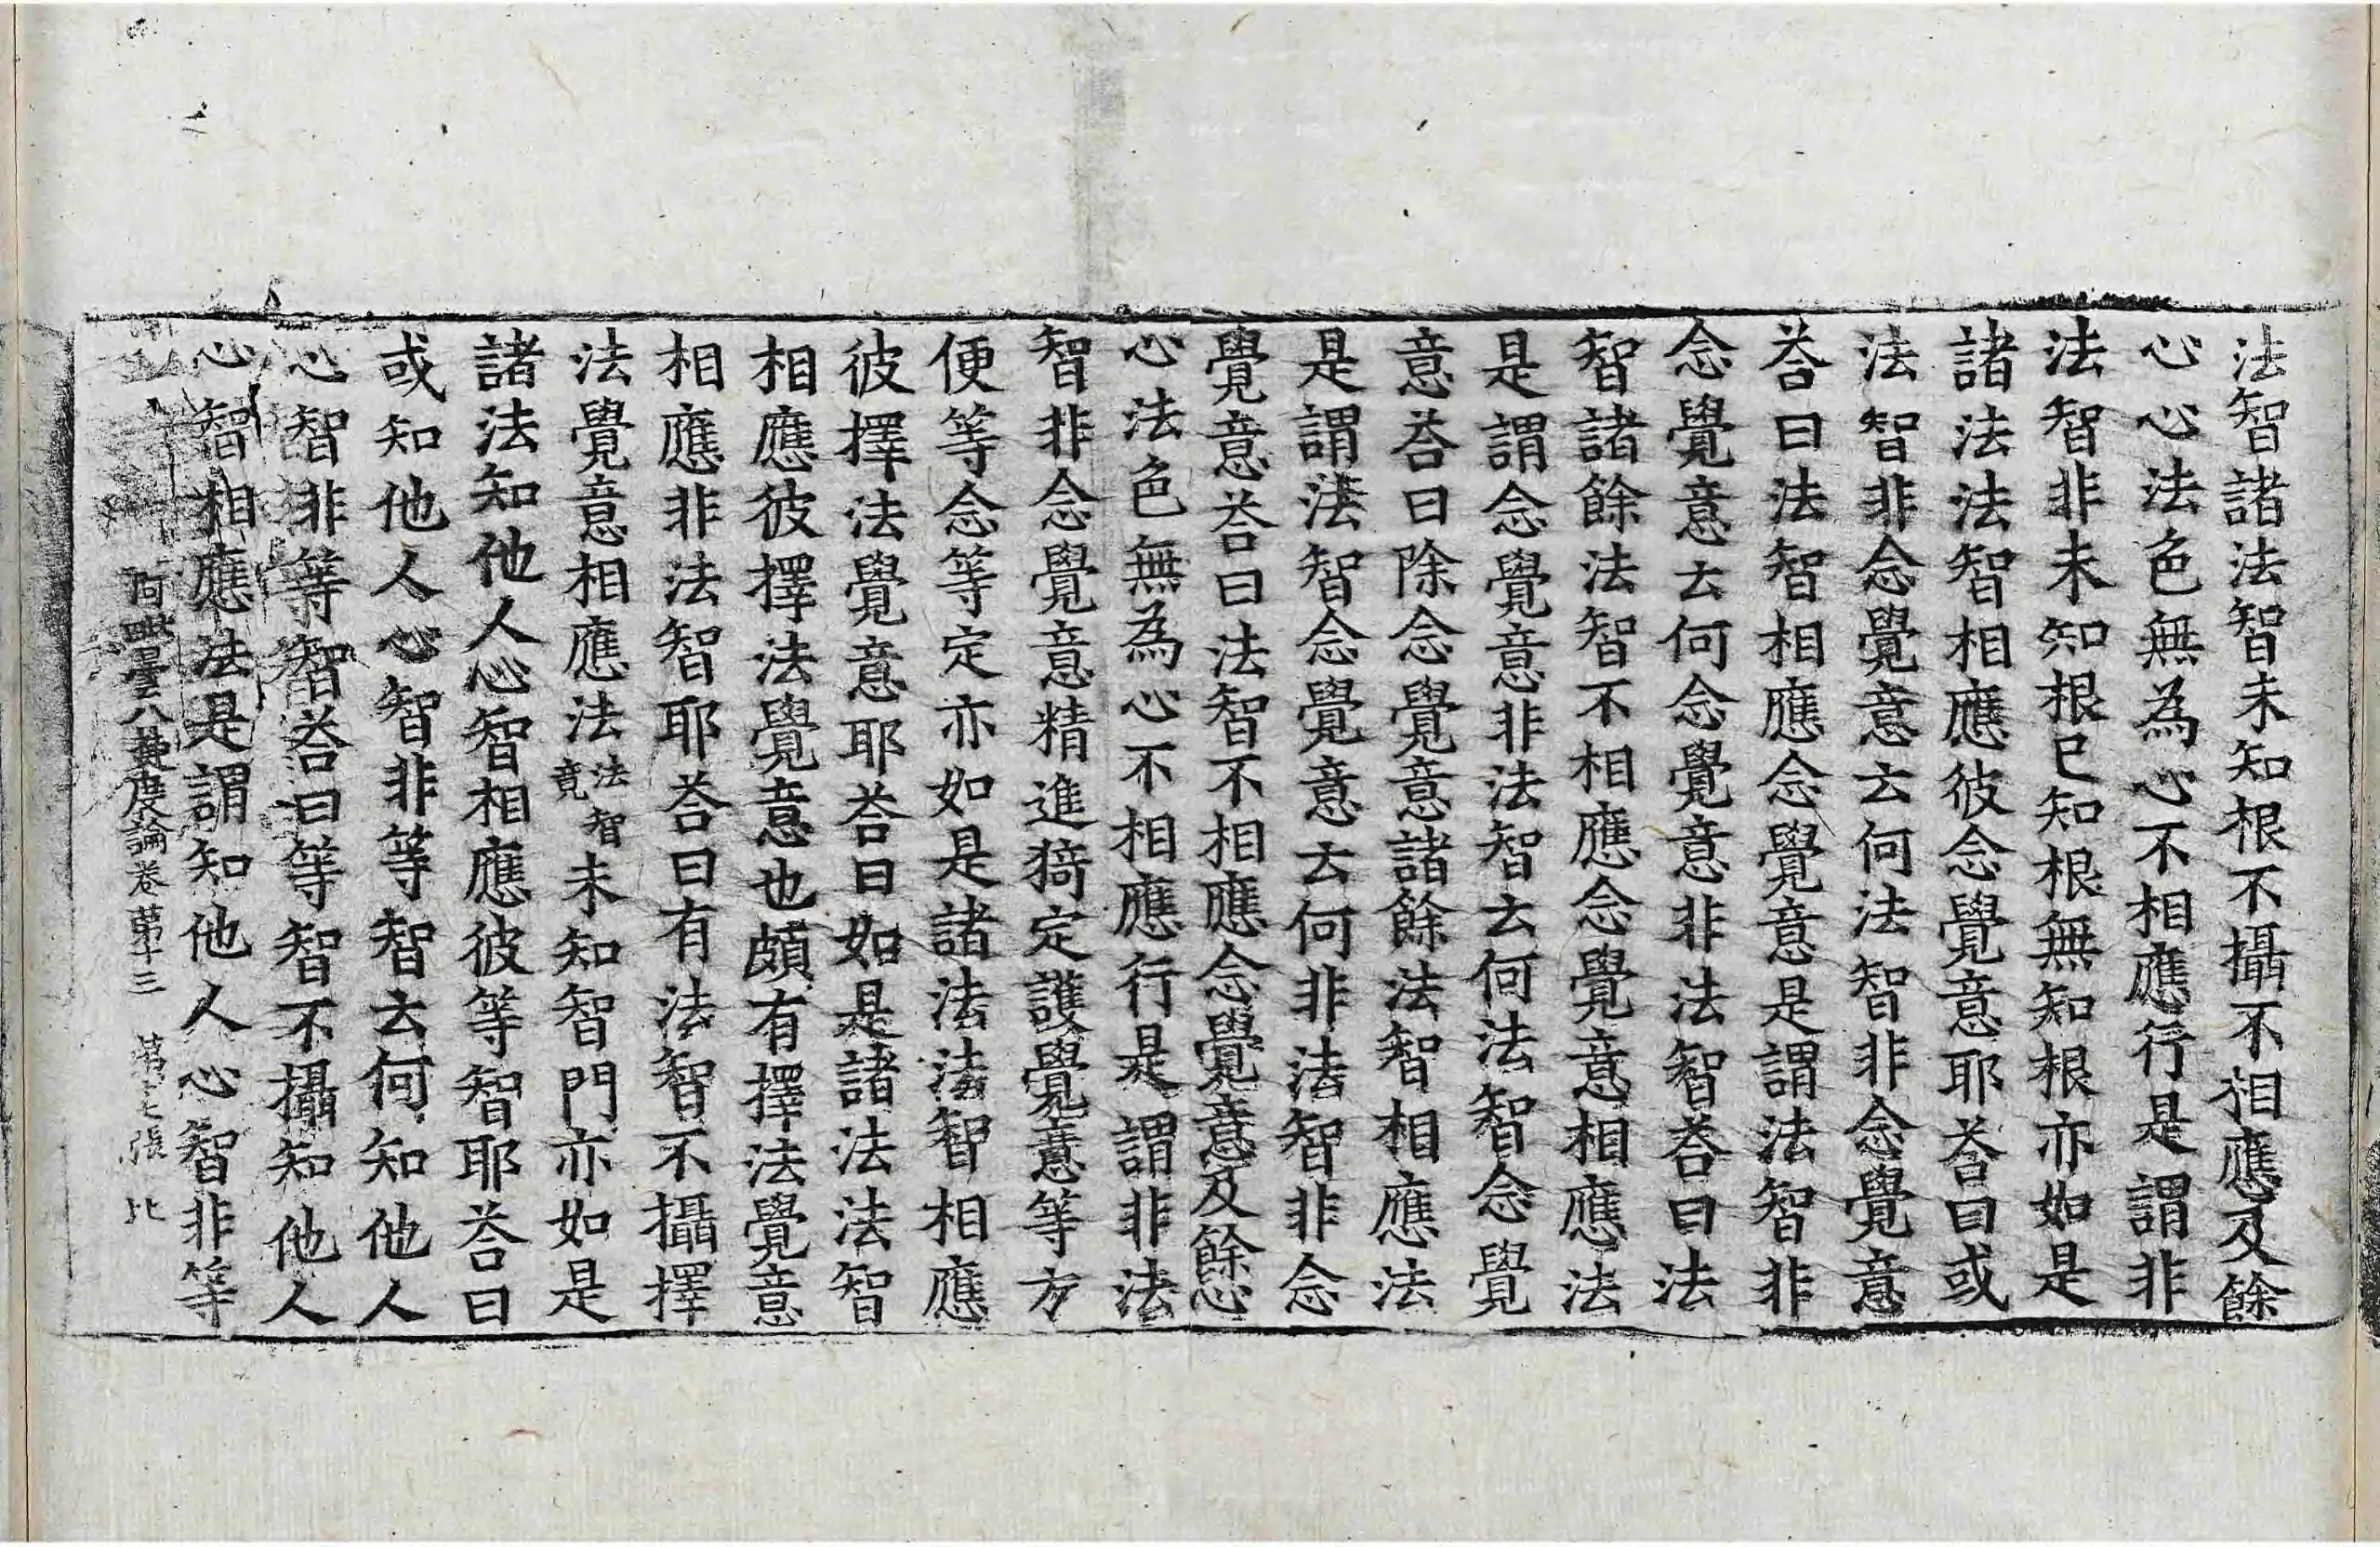 法智諸法智未知根不攝不相應及餘
心心法色無為心不相應行是謂非
法智非未知根已知根無知根亦如是
諸法法智相應彼念覺意耶荅曰或
法智非念覺意云何法智非念覺意
荅曰法智相應念覺意是謂法智非
念覺意云何念覺意非法智荅曰法
智諸餘法智不相應念覺意相應法
是謂念覺意非法智云何法智念覺
意荅曰除念覺意諸餘法智相應法
是謂法智念覺意云何非法智非念
覺意荅曰法智不相應念覺意及餘心
心法色無為心不相應行是謂非法
智非念覺意精進猗定護覺意等方
便等念等定亦如是諸法法智相應
彼擇法覺意耶荅曰如是諸法法智
相應彼擇法覺意也頗有擇法覺意
相應非法智耶荅曰有法智不攝擇
法覺意相應法法智竟未知智門亦如是
諸法知他人心智相應彼等智耶荅曰
或知他人心智非等智云何知他人
心智非等智荅曰等智不攝知他人
心智相應法是謂知他人心智非等
阿毗曇八揵度論卷苐十三 第七張 比